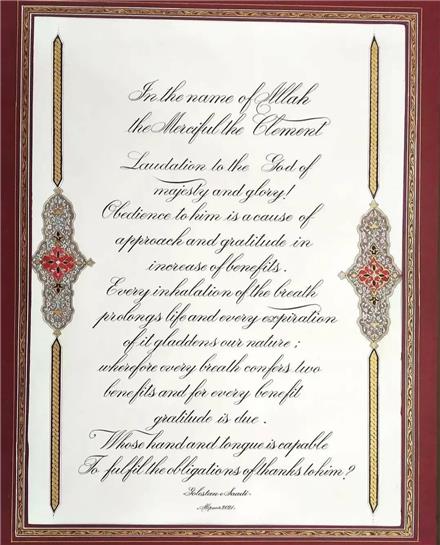 In the name of Allah
the Merciful the Clement
Laudation to the God of
majesty and glory!
Obedience to him is a cause of
approach and gratitude in
increase of benefits.
Every inhalation of the breath
prolongs life and every expiration
of it gladdens our nature;
wherefore every breath confers two
benefits and for every benefit
gratitude is due.
Whose hand and tongue is capable
To fulfil the obligations of thanks to him?
Golestan-e Saadi
2021.